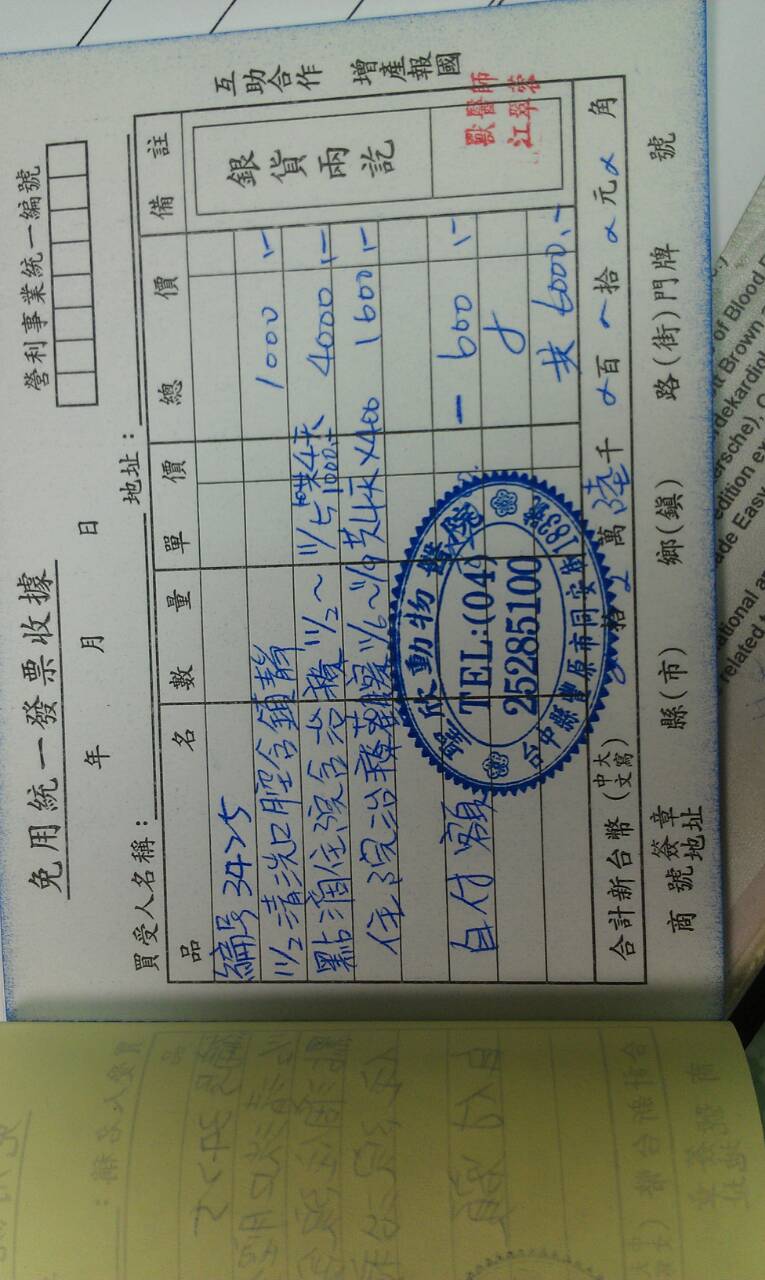 免用統一發票收據
營利事業統一編號
年 月 日
買受人名稱：
地址：
品 名 數 量 單 價 總 價 備 註
編号3425
11/2清洗口腔含鎮靜 1000.-
點滴住院含治療 11/2～11/5共4天 1000.- 4000.-
住院治療 11/6～11/9共4天×400 1600.-
自付額 - 600.-
共6000.-
銀貨兩訖
獸醫師
江翠蓉
欣動物醫院
TEL:(04)
25285100
台中縣豐原市同安街183號
合計新台幣(中文大寫) 拾 萬 陸 千 百 拾 元 角
商號簽章地址 縣(市) 鄉(鎮) 路(街)門牌 號
互助合作 增產報國
of Blood
tt Brown
rdekardiol
ersche),
edition ex
ade Easy
ational a
related